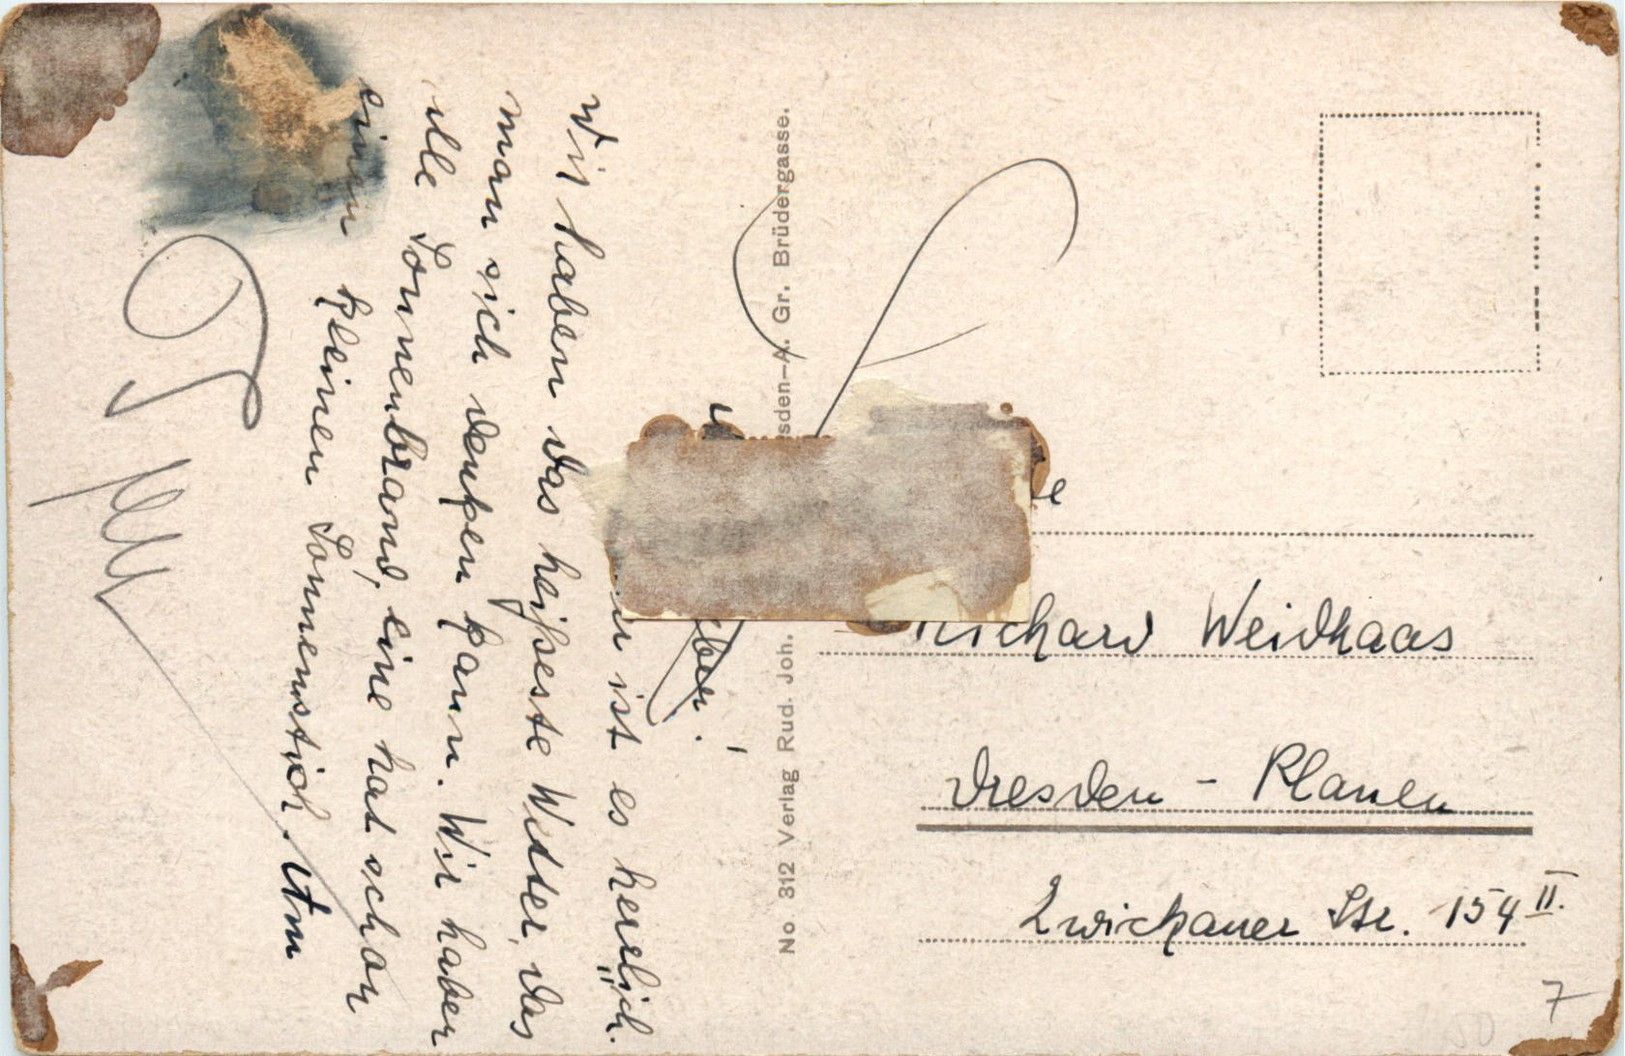 ist es herrlich.
Wir haben das heißeste Wetter, das
man sich denken kann. Wir haben
alle Sonnenbrand, eine hat schon
einen kleinen Sonnenstich. Am
No 312 Verlag Rud. Joh.
sden-A. Gr. Brüdergasse.
Richard Weidhaas
Dresden - Plauen
Zwickauer Str. 154 II.
7
50